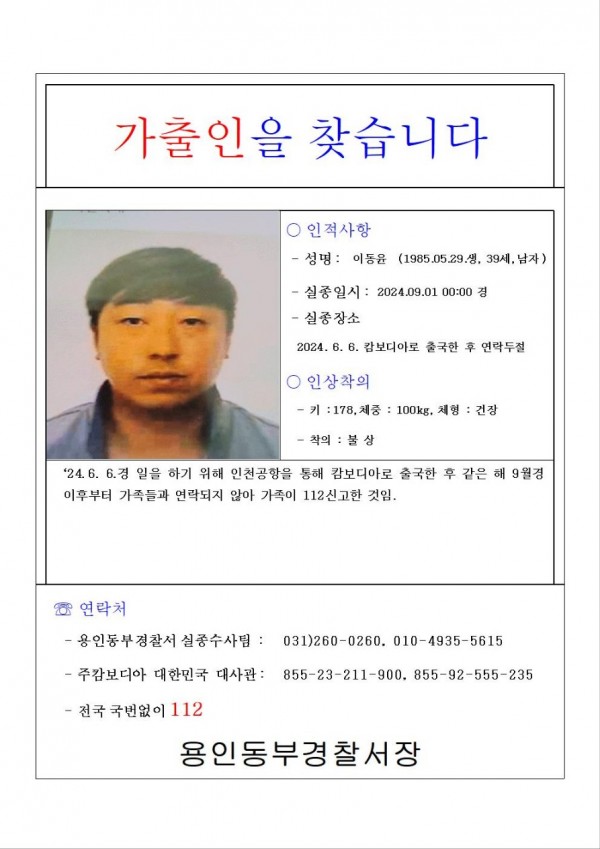 가출인을 찾습니다
○ 인적사항
- 성명 : 이동윤 (1985.05.29.생, 39세,남자)
- 실종일시 : 2024.09.01 00:00 경
- 실종장소
2024. 6. 6. 캄보디아로 출국한 후 연락두절
○ 인상착의
- 키 :178,체중 : 100kg, 체형 : 건장
- 착의 : 불 상
‘24. 6. 6.경 일을 하기 위해 인천공항을 통해 캄보디아로 출국한 후 같은 해 9월경
이후부터 가족들과 연락되지 않아 가족이 112신고한 것임.
☏ 연락처
- 용인동부경찰서 실종수사팀 : 031)260-0260, 010-4935-5615
- 주캄보디아 대한민국 대사관 : 855-23-211-900, 855-92-555-235
- 전국 국번없이 112
용인동부경찰서장